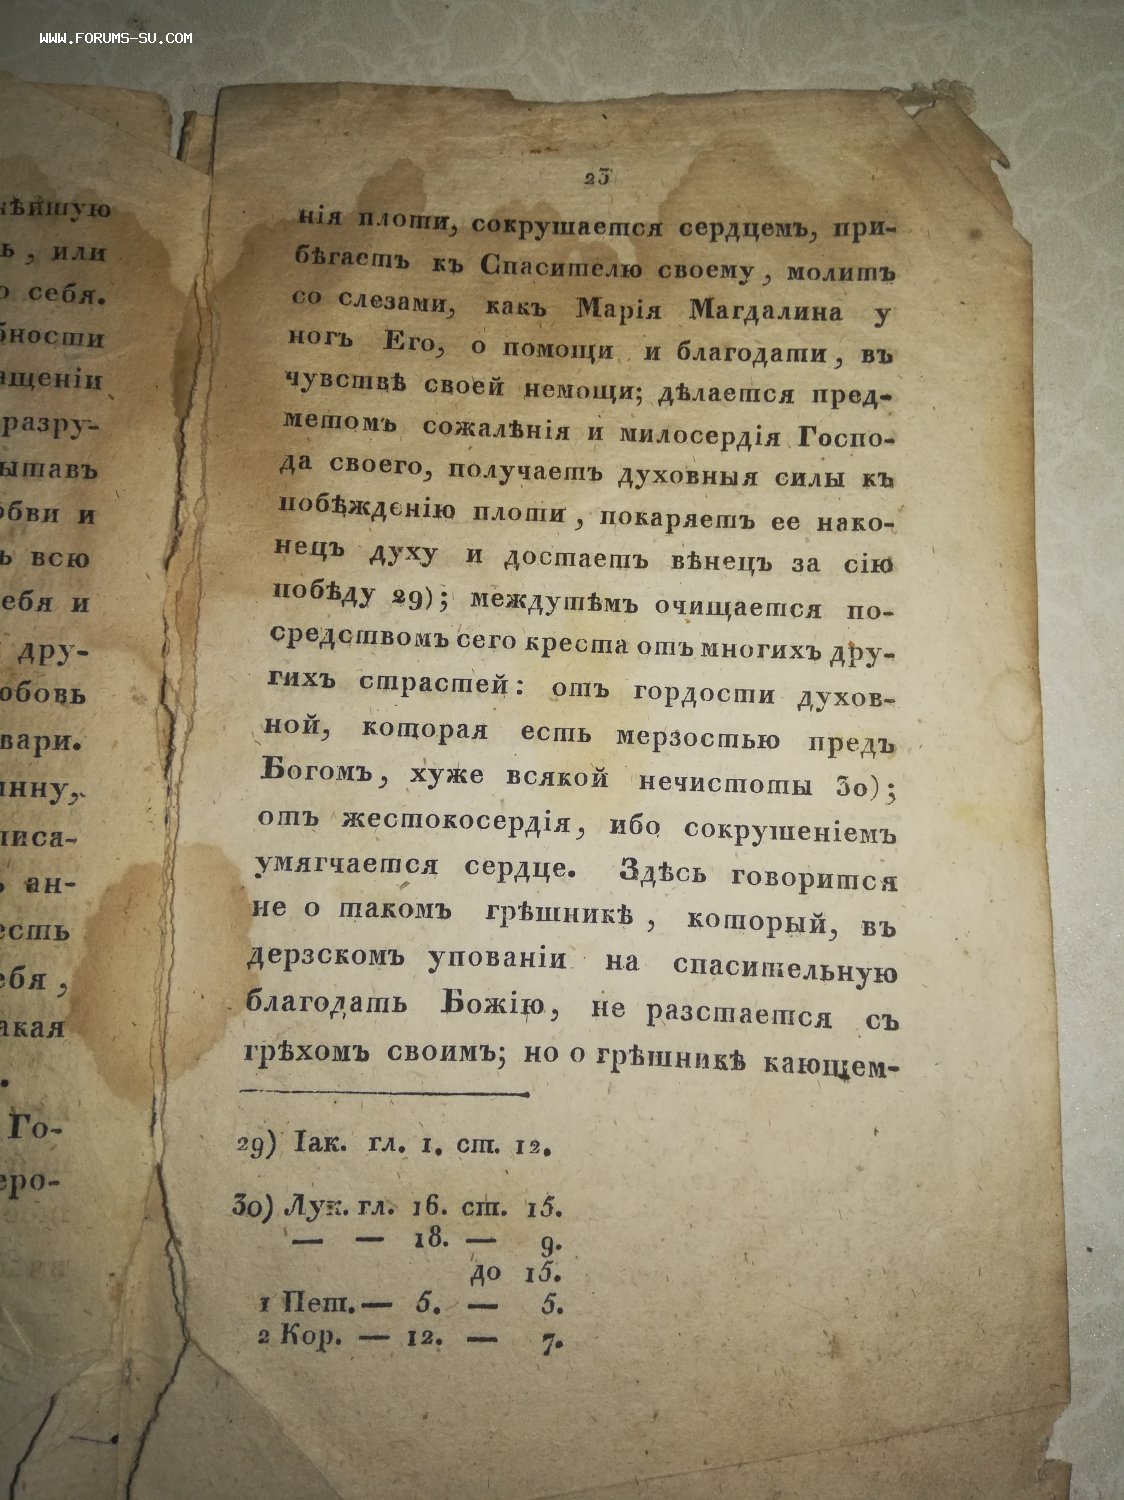 WWW.FORUMS-SU.COM
нѣйшую
ь, или
о себя.
бности
ащеніи
разру-
ытавъ
юбви и
ь всю
ебя и
дру-
юбовь
вари.
инну,
писа-
ь ан-
есть
ебя,
акая
Го-
еро-
23
нія плоти, сокрушается сердцемъ, при-
бѣгаетъ къ Спасителю своему, молитъ
со слезами, какъ Марія Магдалина у
ногъ Его, о помощи и благодати, въ
чувствѣ своей немощи; дѣлается пред-
метомъ сожалѣнія и милосердія Госпо-
да своего, получаетъ духовныя силы къ
побѣжденію плоти, покаряетъ ее нако-
нецъ духу и достаетъ вѣнецъ за сію
побѣду 29); междутѣмъ очищается по-
средствомъ сего креста отъ многихъ дру-
гихъ страстей: отъ гордости духов-
ной, которая есть мерзостью предъ
Богомъ, хуже всякой нечистоты 30);
отъ жестокосердія, ибо сокрушеніемъ
умягчается сердце. Здѣсь говорится
не о такомъ грѣшникѣ, который, въ
дерзскомъ упованіи на спасительную
благодать Божію, не разстается съ
грѣхомъ своимъ; но о грѣшникѣ кающем-
29) Іак. гл. 1. ст. 12.
30) Лук. гл. 16. ст. 15.
— — 18. — 9.
до 15.
1 Пет. — 5. — 5.
2 Кор. — 12. — 7.